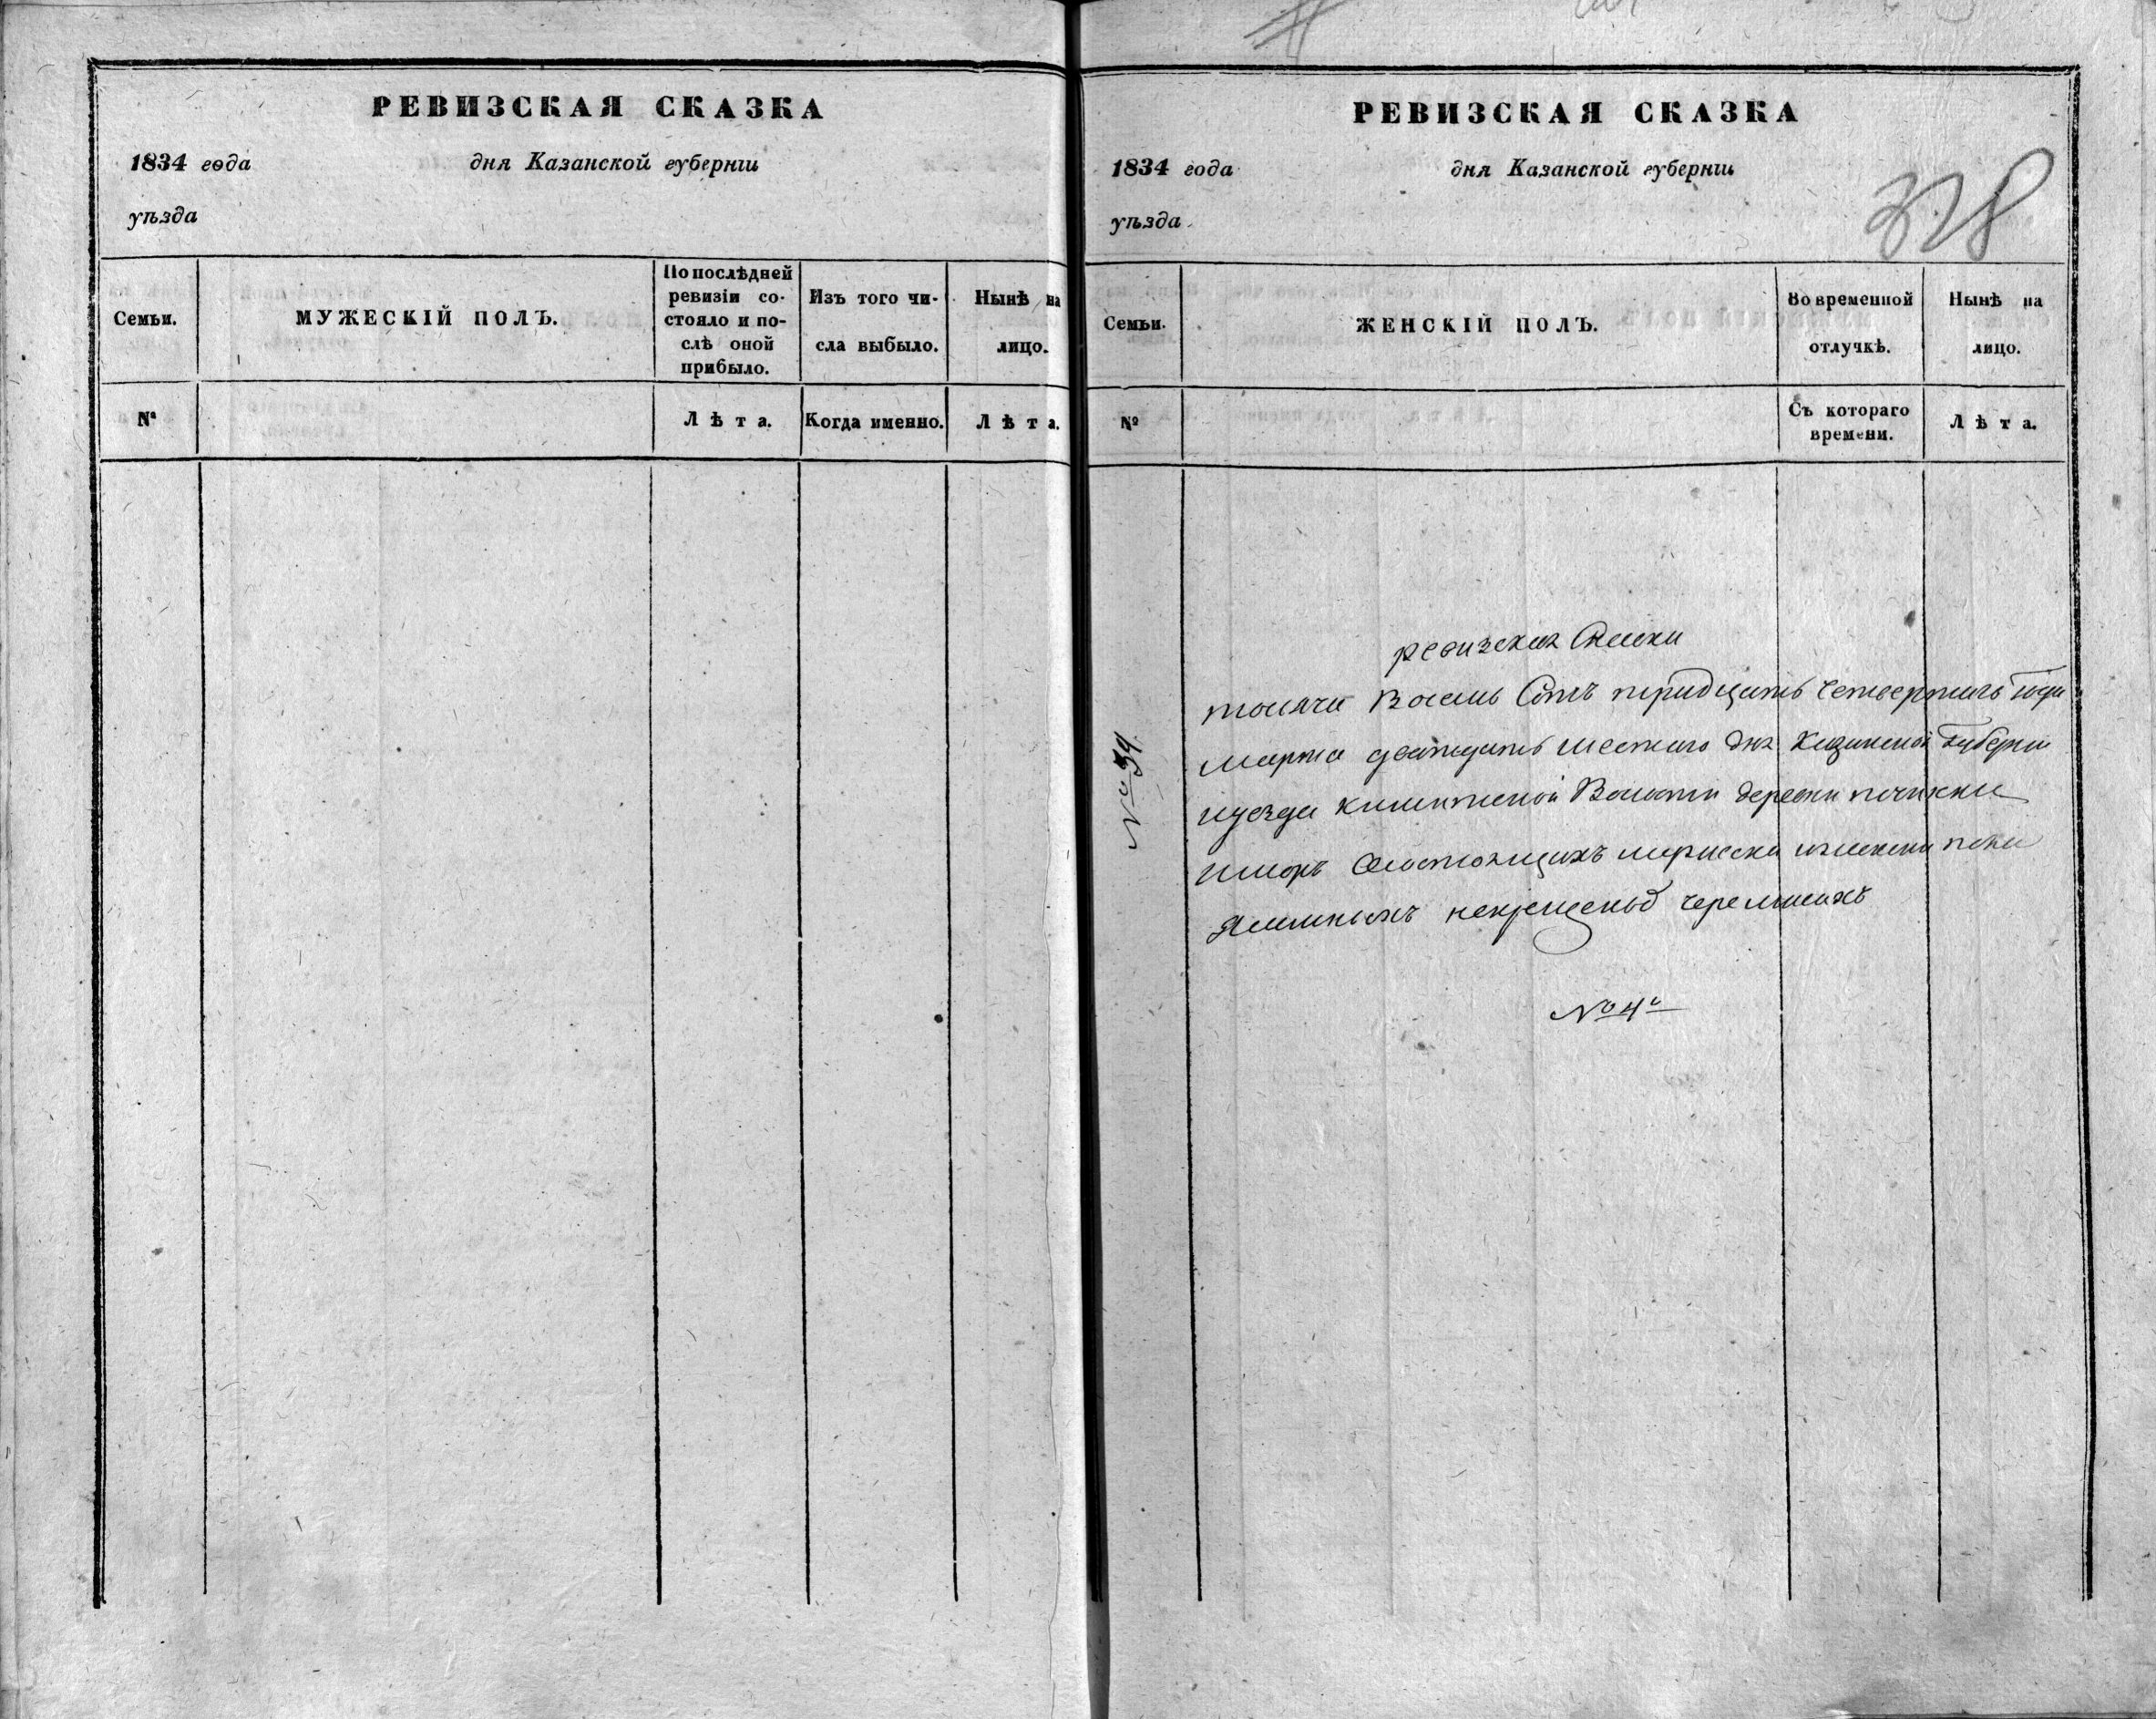 РЕВИЗСКАЯ СКАЗКА
1834 года дня Казанской губерніи
уѣзда
Семьи.
МУЖЕСКІЙ ПОЛЪ.
По послѣдней
ревизіи со-
стояло и по-
слѣ оной
прибыло.
Изъ того чи-
сла выбыло.
Нынѣ на
лицо.
№
Лѣта.
Когда именно.
Лѣта.
РЕВИЗСКАЯ СКАЗКА
1834 года дня Казанской губерніи
уѣзда
328
Семьи.
ЖЕНСКІЙ ПОЛЪ.
Во временной
отлучкѣ.
Нынѣ на
лицо.
№
Съ котораго
времени.
Лѣта.
№ 34
ревизская Скаска
тысяча Восемь Сотъ тридцать четвертаго года
марта дватцать шестаго дня Казанской Губернии
уезда Волости деревни
состоящихъ
Ясашныхъ некрещеныхъ черемисахъ
№ 4